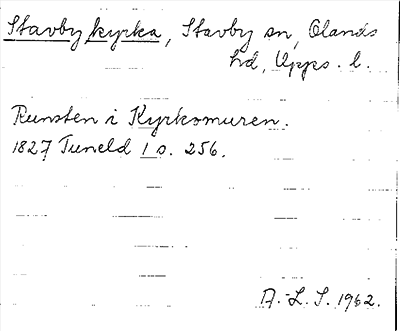 Stavby kyrka, Stavby sn, Olands
hd, Upps. l.
Runsten i Kyrkomuren.
1827 Tuneld 1 s. 256.
A.-L. S. 1962.